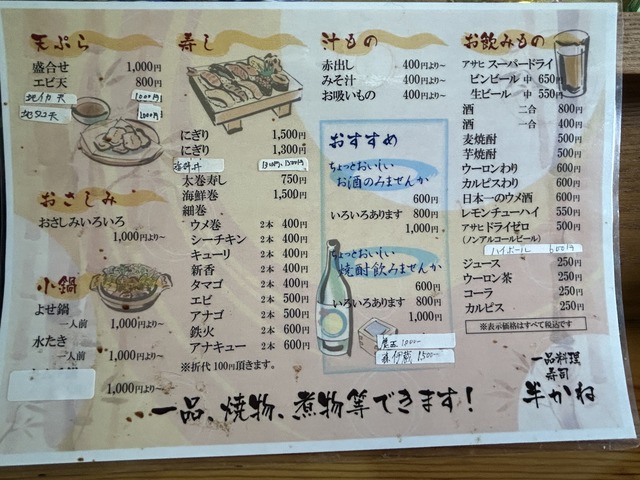 天ぷら
盛合せ 1,000円
エビ天 800円
地イカ天 1000円
地タコ天 1000円
おさしみ
おさしみいろいろ
1,000円より~
小鍋
よせ鍋
一人前 1,000円より~
水たき
一人前 1,000円より~
1,000円より~
寿し
にぎり 1,500円
にぎり 1,300円
太巻寿し 750円
海鮮巻 1,500円
細巻
ウメ巻 2本 400円
シーチキン 2本 400円
キューリ 2本 400円
新香 2本 400円
タマゴ 2本 400円
エビ 2本 500円
アナゴ 2本 500円
鉄火 2本 600円
アナキュー 2本 600円
※折代100円頂きます。
汁もの
赤出し 400円より~
みそ汁 400円より~
お吸いもの 400円より~
おすすめ
ちょっとおいしい
お酒のみませんか
600円
いろいろあります 800円
1,000円
ちょっとおいしい
焼酎飲みませんか
600円
いろいろあります 800円
1,000円
魔王 1000-
森伊蔵 1500-
お飲みもの
アサヒ スーパードライ
ビンビール 中 650円
生ビール 中 550円
酒 二合 800円
酒 一合 400円
麦焼酎 500円
芋焼酎 500円
ウーロンわり 600円
カルピスわり 600円
日本一のウメ酒 600円
レモンチューハイ 550円
アサヒドライゼロ 500円
(ノンアルコールビール)
ハイボール 600円
ジュース 250円
ウーロン茶 250円
コーラ 250円
カルピス 250円
※表示価格はすべて税込です
一品、焼物、煮物等できます!
一品料理
寿司
半かね